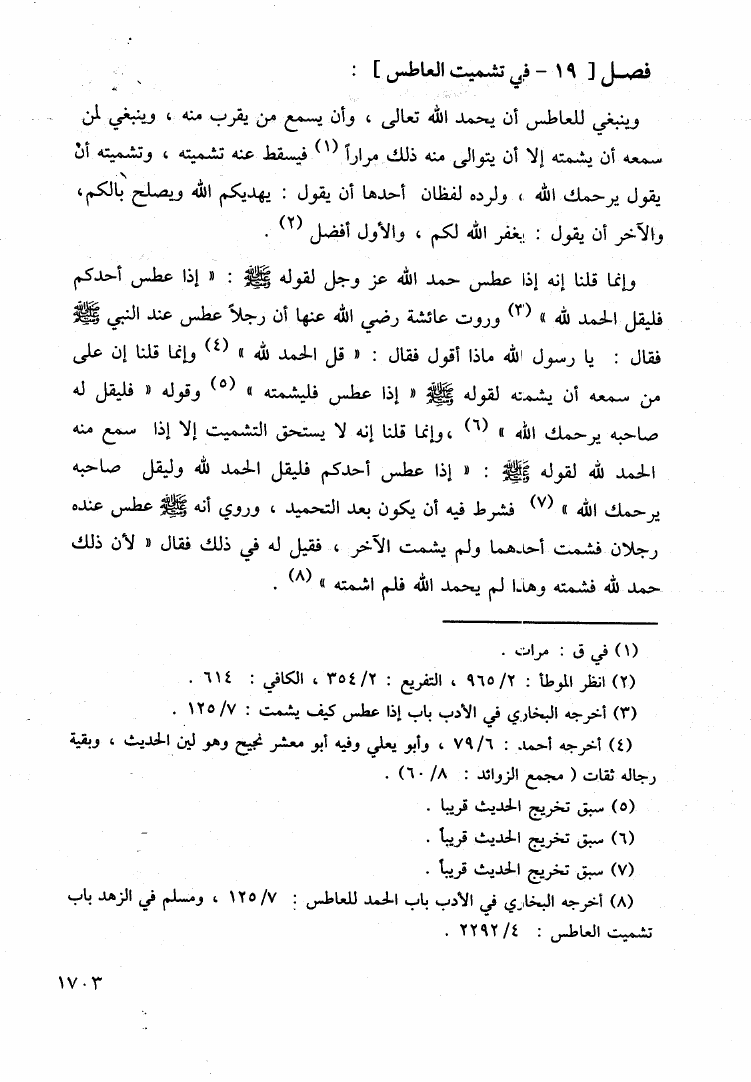 فصل [ ١٩ - في تشميت العاطس ] :
وينبغي للعاطس أن يحمد الله تعالى ، وأن يسمع من يقرب منه ، وينبغي لمن
سمعه أن يشمته إلا أن يتوالى منه ذلك مراراً (١) فيسقط عنه تشميته ، وتشميته أنْ
يقول يرحمك الله ، ولرده لفظان أحدها أن يقول : يهديكم الله ويصلح بالكم،
والآخر أن يقول : يغفر الله لكم ، والأول أفضل (٢) .
وإنما قلنا إنه إذا عطس حمد الله عز وجل لقوله ﷺ : « إذا عطس أحدكم
فليقل الحمد لله » (٣) وروت عائشة رضي الله عنها أن رجلاً عطس عند النبي ﷺ
فقال : يا رسول الله ماذا أقول فقال : « قل الحمد لله » (٤) وإنما قلنا إن على
من سمعه أن يشمته لقوله ﷺ « إذا عطس فليشمته » (٥) وقوله « فليقل له
صاحبه يرحمك الله » (٦) ،وإنما قلنا إنه لا يستحق التشميت إلا إذا سمع منه
الحمد لله لقوله ﷺ : « إذا عطس أحدكم فليقل الحمد لله وليقل صاحبه
يرحمك الله » (٧) فشرط فيه أن يكون بعد التحميد ، وروي أنه ﷺ عطس عنده
رجلان فشمت أحدهما ولم يشمت الآخر ، فقيل له في ذلك فقال « لأن ذلك
حمد لله فشمته وهذا لم يحمد الله فلم اشمته » (٨) .
(١) في ق : مرات .
(٢) انظر الموطأ : ٩٦٥/٢ ، التفريع : ٣٥٤/٢ ، الكافي : ٦١٤ .
(٣) أخرجه البخاري في الأدب باب إذا عطس كيف يشمت : ١٢٥/٧ .
(٤) أخرجه أحمد : ٧٩/٦ ، وأبو يعلي وفيه أبو معشر نجيح وهو لين الحديث ، وبقية
رجاله ثقات ( مجمع الزوائد : ٦٠/٨) .
(٥) سبق تخريج الحديث قريبا .
(٦) سبق تخريج الحديث قريباً .
(٧) سبق تخريج الحديث قريباً .
(٨) أخرجه البخاري في الأدب باب الحمد للعاطس : ١٢٥/٧ ، ومسلم في الزهد باب
تشميت العاطس : ٢٢٩٢/٤ .
١٧٠٣